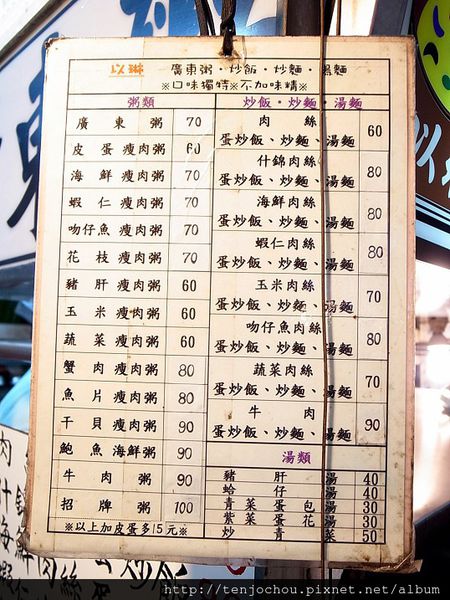 以琳 廣東粥·炒飯·炒麵·湯麵
※口味獨特※不加味精※
粥類
廣東粥 70
皮蛋瘦肉粥 60
海鮮瘦肉粥 70
蝦仁瘦肉粥 70
吻仔魚瘦肉粥 70
花枝瘦肉粥 70
豬肝瘦肉粥 60
玉米瘦肉粥 60
蔬菜瘦肉粥 60
蟹肉瘦肉粥 80
魚片瘦肉粥 80
干貝瘦肉粥 90
鮑魚海鮮粥 90
牛肉粥 90
招牌粥 100
※以上加皮蛋多15元※
炒飯·炒麵·湯麵
肉絲
蛋炒飯、炒麵、湯麵 60
什錦肉絲
蛋炒飯、炒麵、湯麵 80
海鮮肉絲
蛋炒飯、炒麵、湯麵 80
蝦仁肉絲
蛋炒飯、炒麵、湯麵 80
玉米肉絲
蛋炒飯、炒麵、湯麵 70
吻仔魚肉絲
蛋炒飯、炒麵、湯麵 80
蔬菜肉絲
蛋炒飯、炒麵、湯麵 70
牛肉
蛋炒飯、炒麵、湯麵 90
湯類
豬肝湯 40
蛤仔湯 40
青菜蛋包湯 30
紫菜蛋花湯 30
炒青菜 50
http://tenjochou.pixnet.net/album